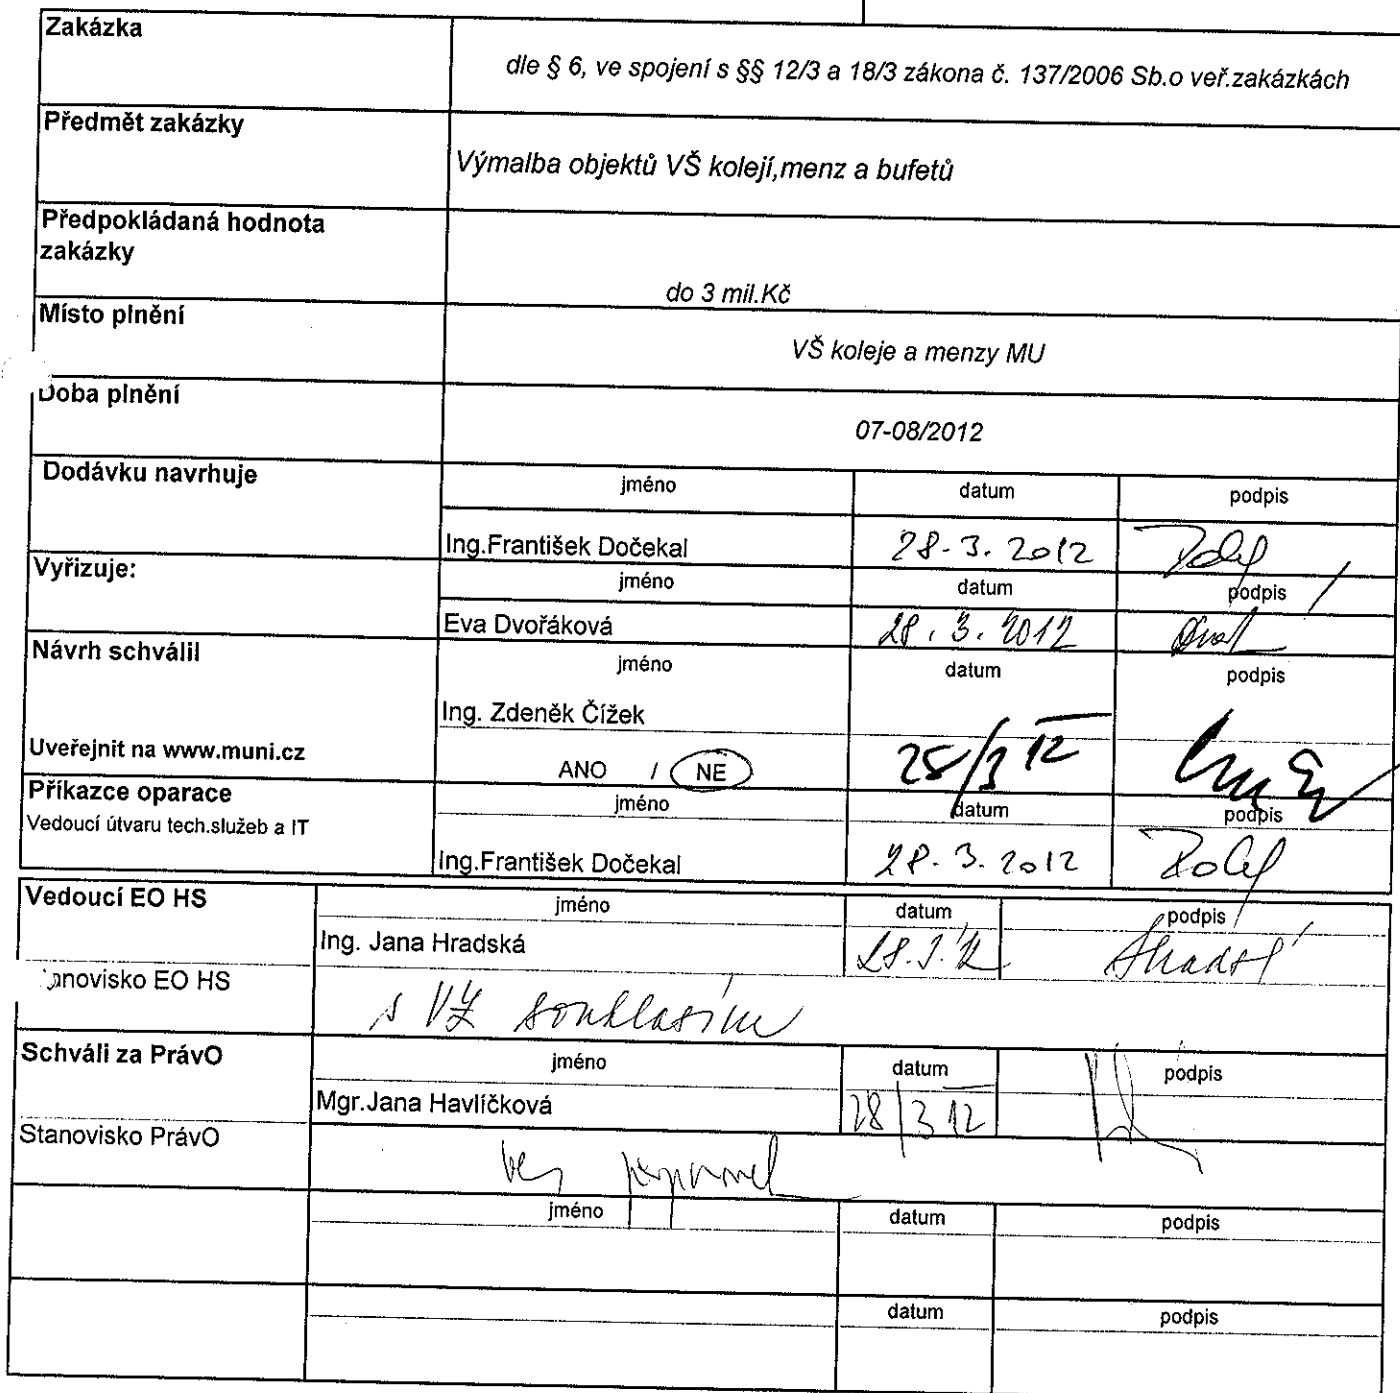 Zakázka
dle § 6, ve spojení s §§ 12/3 a 18/3 zákona č. 137/2006 Sb.o veř.zakázkách
Předmět zakázky
Výmalba objektů VŠ kolejí,menz a bufetů
Předpokládaná hodnota
zakázky
do 3 mil.Kč
Místo plnění
VŠ koleje a menzy MU
Doba plnění
07-08/2012
Dodávku navrhuje
jméno datum podpis
Ing.František Dočekal 28.3.2012
Vyřizuje:
jméno datum podpis
Eva Dvořáková 28.3.2012
Návrh schválil
jméno datum podpis
Ing. Zdeněk Čížek
Uveřejnit na www.muni.cz
ANO / NE
Příkazce oparace
jméno datum podpis
Vedoucí útvaru tech.služeb a IT
Ing.František Dočekal 28.3.2012
Vedoucí EO HS
jméno datum podpis
Ing. Jana Hradská 28.3.12
anovisko EO HS
s VZ souhlasím
Schváli za PrávO
jméno datum podpis
Mgr.Jana Havlíčková 28/3 12
Stanovisko PrávO
bez
jméno datum podpis
datum podpis